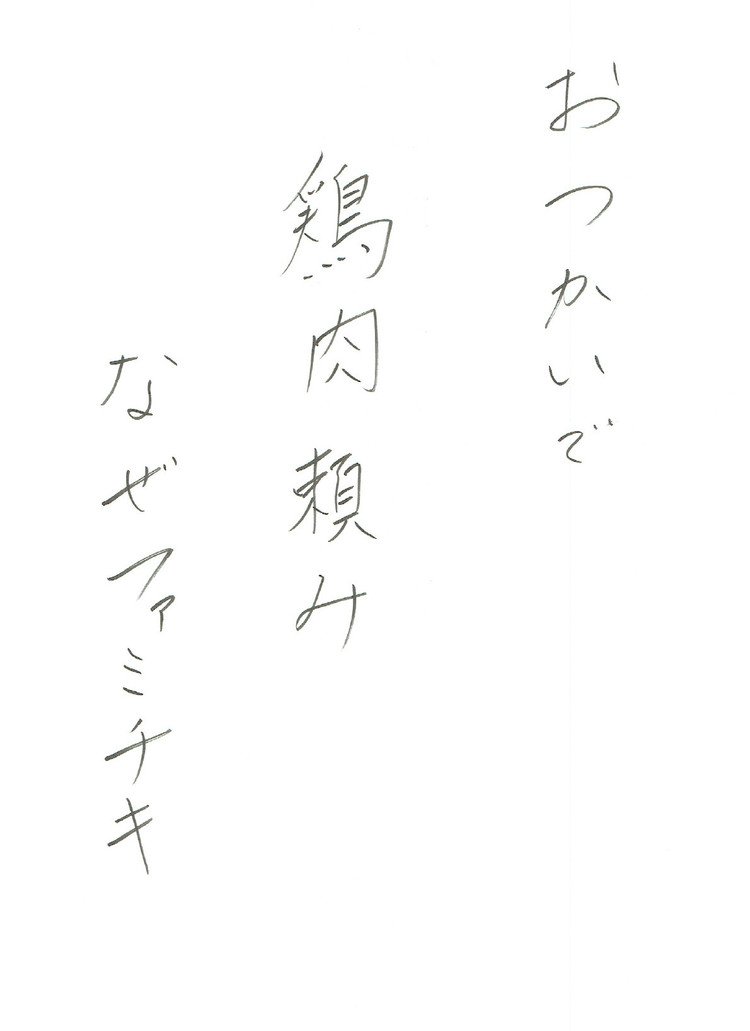 おつかいで
鶏肉頼み
なぜファミチキ